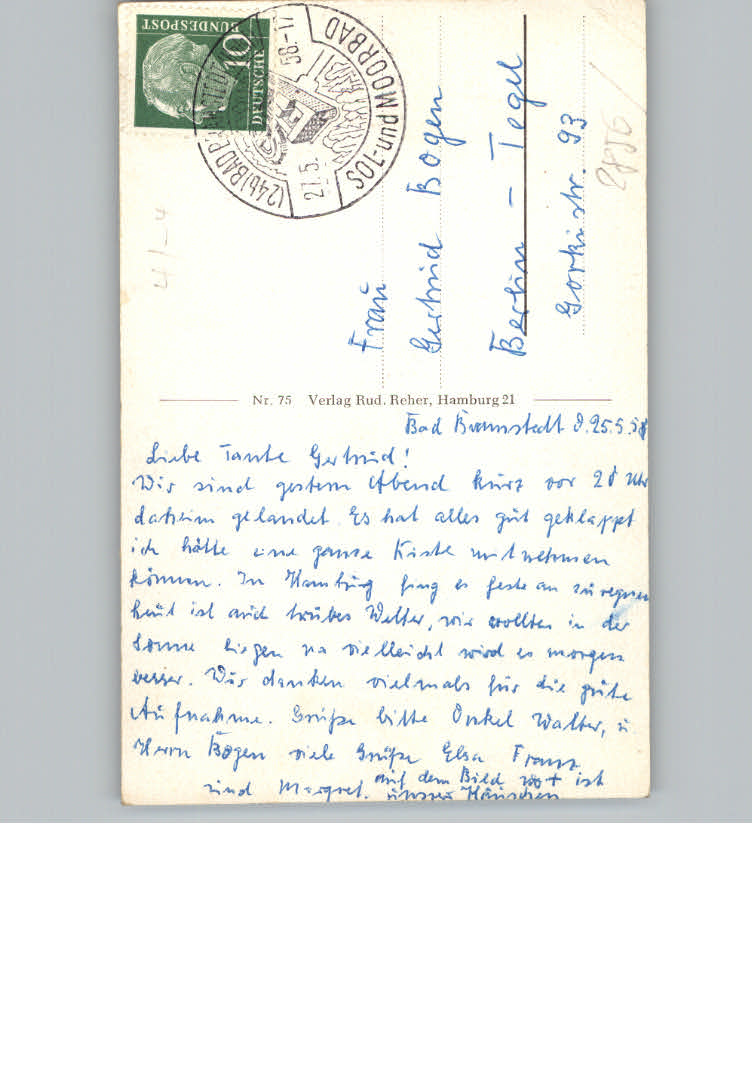 BUNDESPOST
10
DEUTSCHE
(24b) BAD
27.5.58.-17
SOL- und MOORBAD
4/-4
Frau
Gertrud Bogen
Berlin – Tegel
Gorkistr. 93
Nr. 75 Verlag Rud. Reher, Hamburg 21
Bad Bramstedt d. 25.5.58
Liebe Tante Gertrud!
Wir sind gestern Abend kurz vor 20 Uhr
daheim gelandet. Es hat alles gut geklappt
ich hätte eine ganze Kiste mitnehmen
können. In Hamburg fing es feste an zu regnen
heut ist auch trübes Wetter, wir wollten in der
Sonne liegen na vielleicht wird es morgen
besser. Wir danken vielmals für die gute
Aufnahme. Grüße bitte Onkel Walter, u
Herrn Bogen viele Grüße Elsa Franz
und Margret. auf dem Bild wo + ist
unser Häuschen